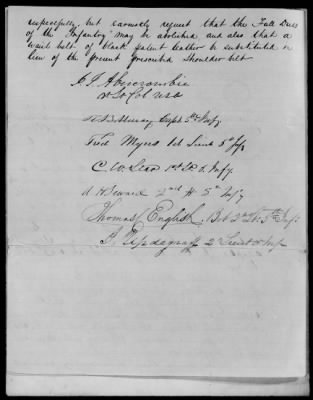 respectfully, but earnestly request that the Full Dress
of the "Infantry" may be abolished and also that a
waist belt of black patent leather be substituted in
lieu of the present prescribed shoulder belt
J. J. Abercrombie
Lt Col USA
Capt 5th Infy
Fred Myers 1st Lieut 5th Infy
C. W. Lear 1st Lt 5 Infy
A H Seward 2nd Lt 5th Infy
Thomas English. Bvt 2d Lt. 5th Inf:
J. Updegraff 2 Lieut 5th Inf